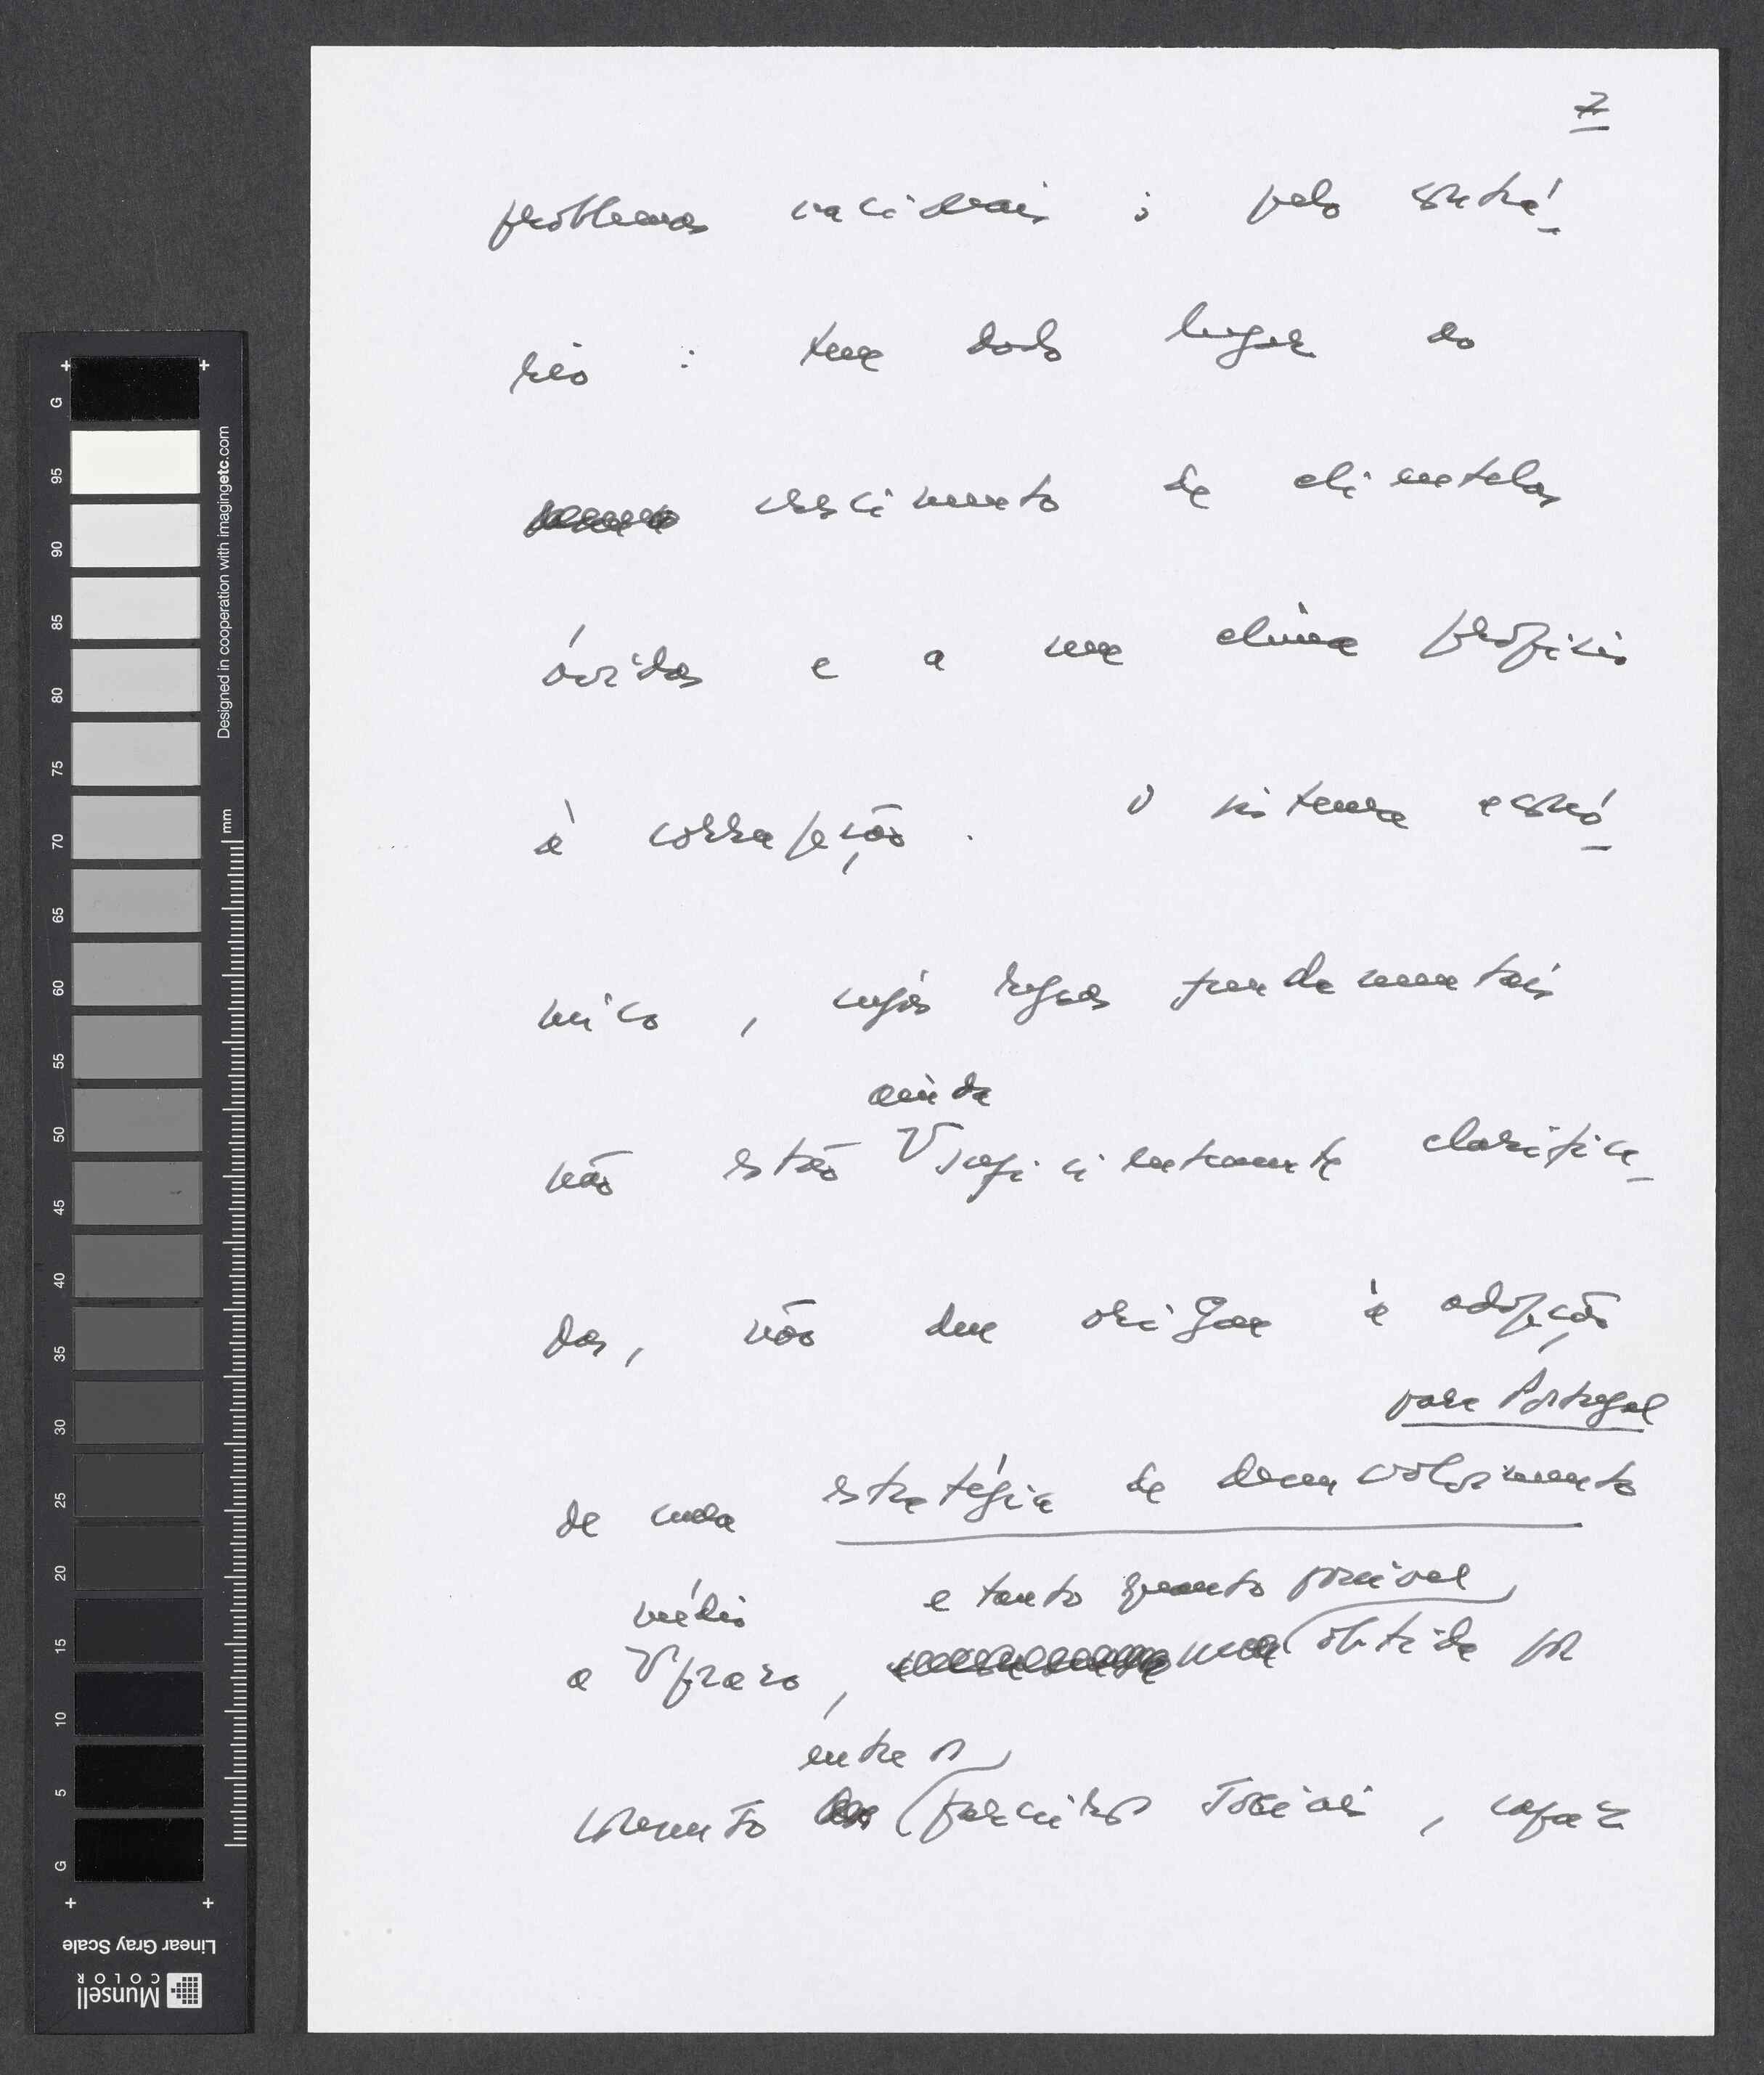 7
problemas nacionais ; pelo contrá-
rio : tem dado lugar ao
crescimento de clientelas
ávidas e a um clima propício
à corrupção . O sistema econó-
mico , cujas regras fundamentais
ainda
não estão V suficientemente clarifica-
das, não deu origem à adopção
para Portugal
de uma estratégia de desenvolvimento
médio e tanto quanto possível
a V prazo , obtida por
entre os
consenso parceiros sociais , capaz
G
95
90
85
80
75
70
65
60
55
50
45
40
35
30
25
20
15
10
5
G
Designed in cooperation with imagingetc.com
mm
Linear Gray Scale
Munsell
COLOR